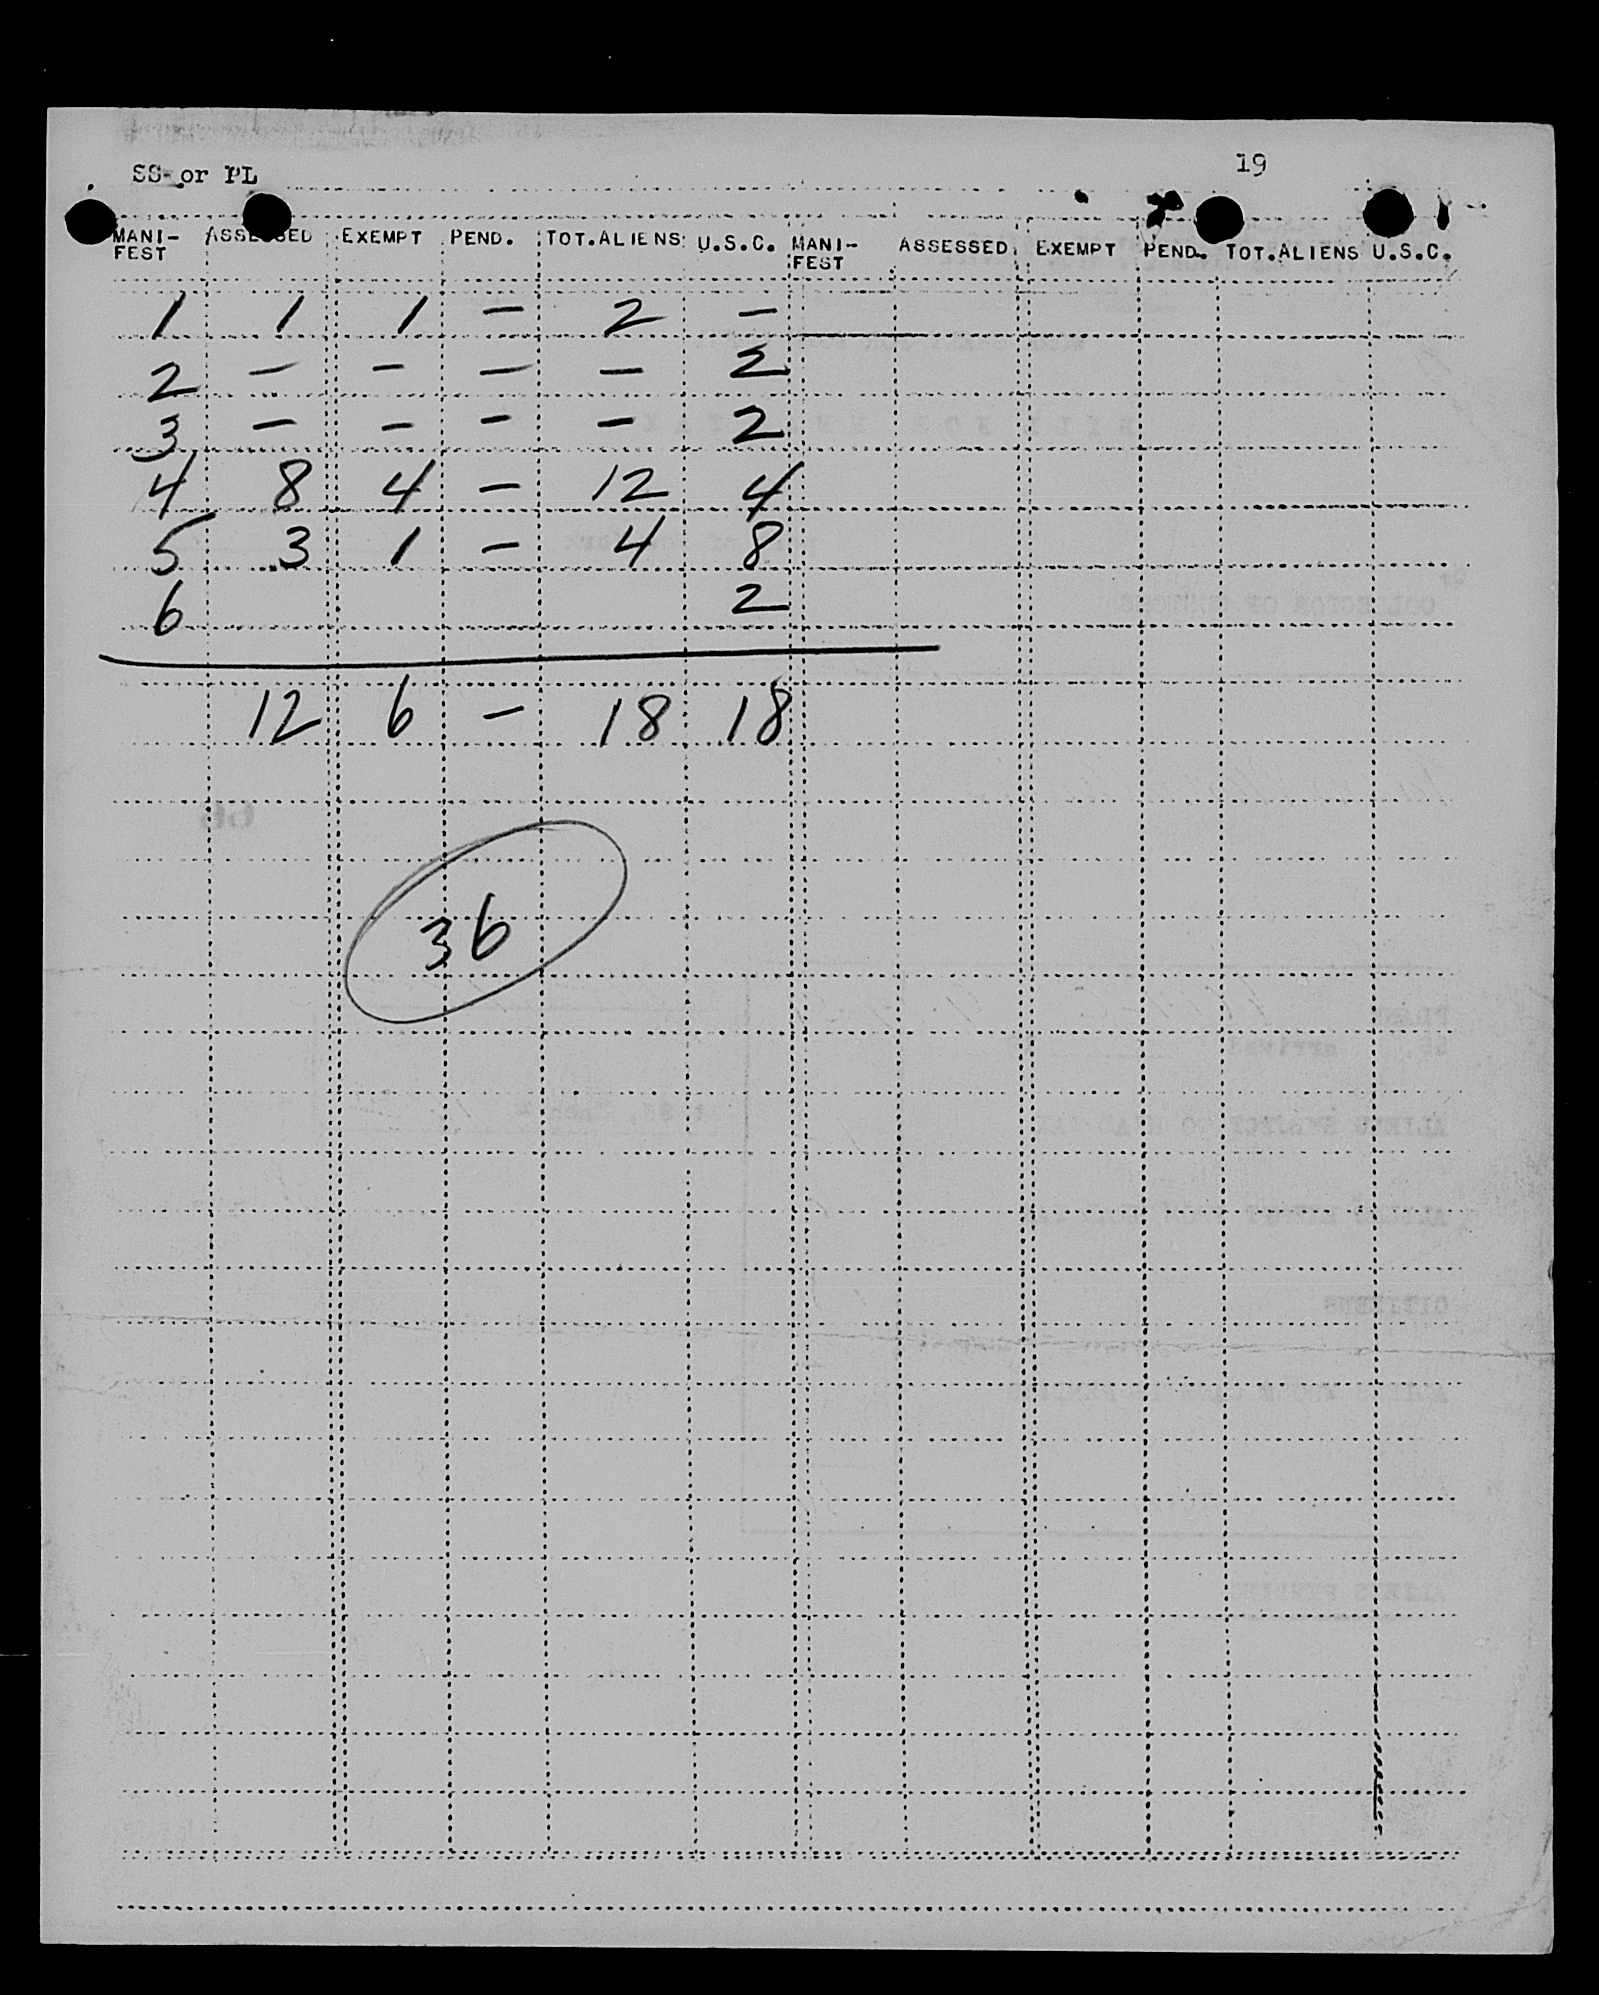 SS or PL 19
MANI-FEST ASSESSED EXEMPT PEND. TOT.ALIENS U.S.C. MANI-FEST ASSESSED EXEMPT PEND. TOT.ALIENS U.S.C.
1 1 1 - 2 -
2 - - - - 2
3 - - - - 2
4 8 4 - 12 4
5 3 1 - 4 8
6 2
12 6 - 18 18
36